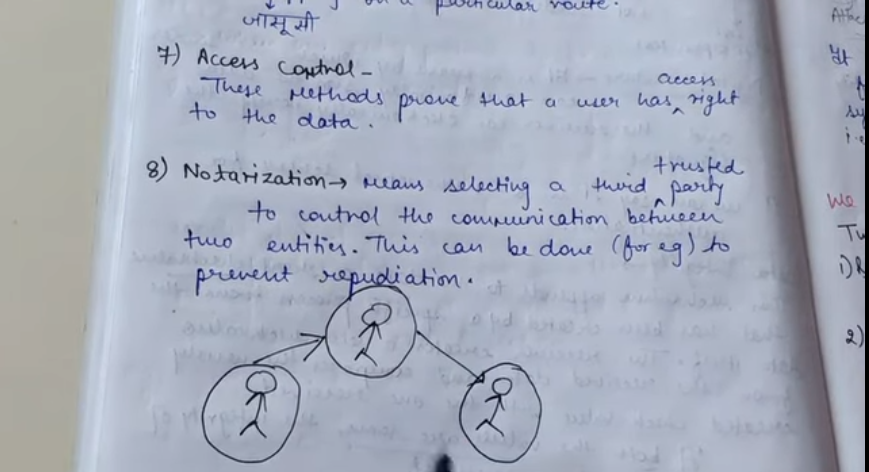 particular route.
जासूसी
7) Access Control -
These Methods prove that a user has access right
to the data.
8) Notarization → Means selecting a third trusted party
to control the communication between
two entities. This can be done (for eg) to
prevent repudiation.
It
i.e
We
1)
2)